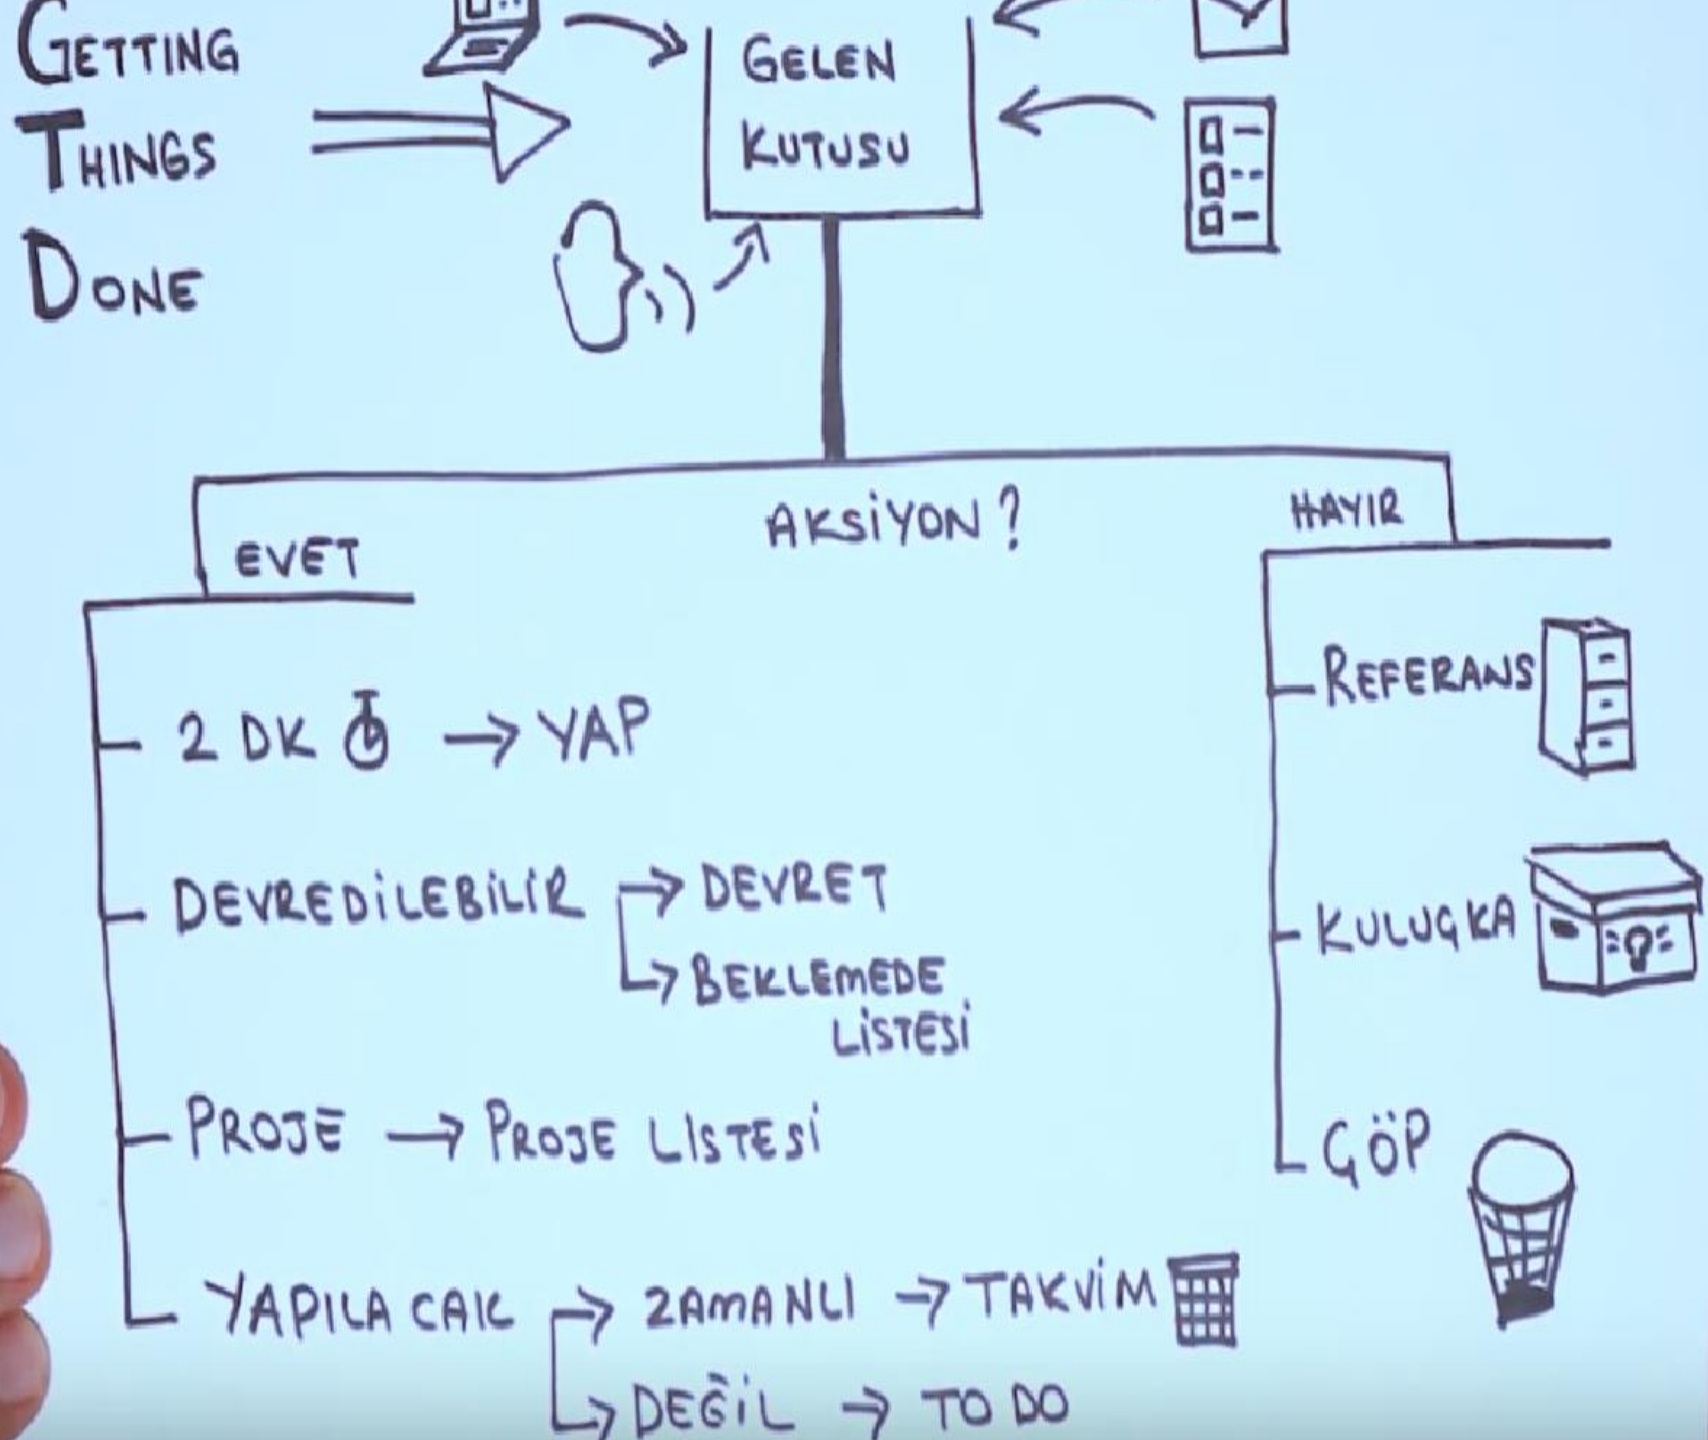 GETTING
THINGS
DONE
GELEN
KUTUSU
AKSİYON?
EVET
2 DK → YAP
DEVREDİLEBİLİR → DEVRET
→ BEKLEMEDE
LİSTESİ
PROJE → PROJE LİSTESİ
YAPILACAK → ZAMANLI → TAKVİM
→ DEĞİL → TO DO
HAYIR
REFERANS
KULUÇKA
ÇÖP